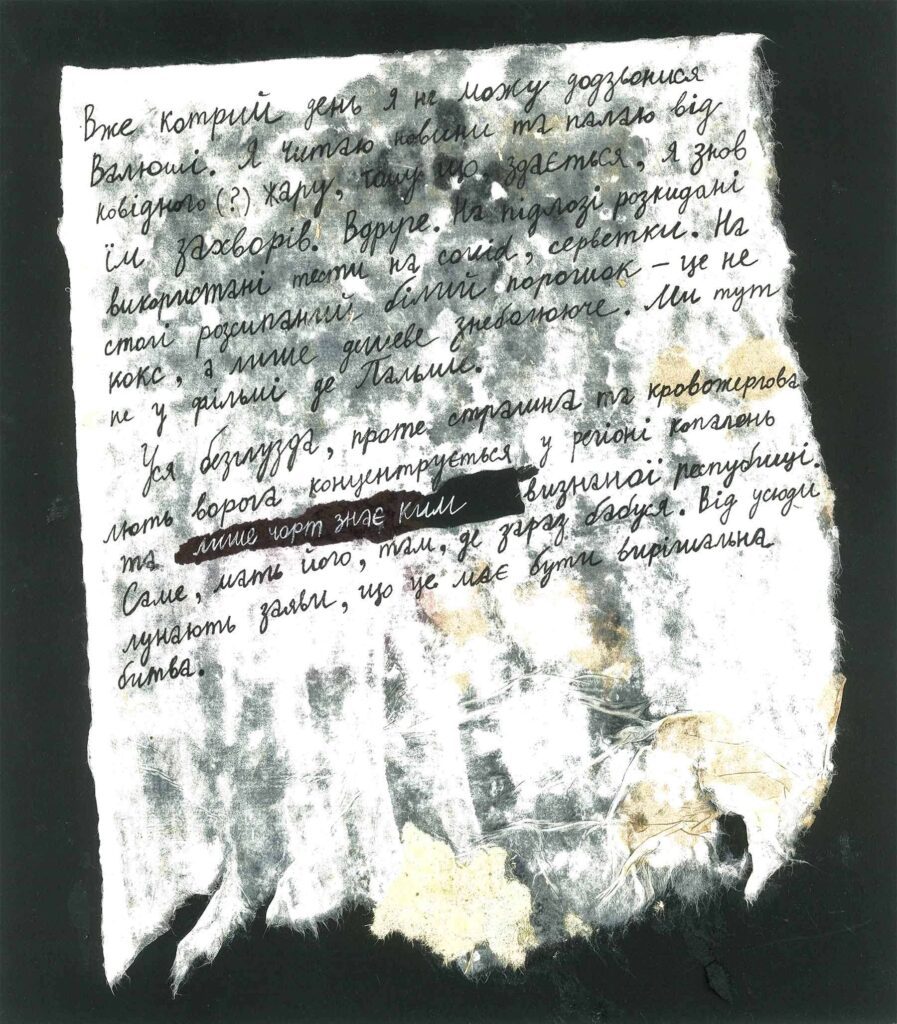 Вже котрий день я не можу додзвонися
Валюші. Я читаю новини та палаю від
ковідного (?) жару, тому що здається, я знов
їм захворів. Вдруге. На підлозі розкидані
використані тести на covid, серветки. На
столі розсипаний білий порошок – це не
кокс, а лише дешеве знеболююче. Ми тут
не у фільмі де Пальми.
Уся безглузда, проте страшна та кровожерлова
лють ворога концентрується у регіоні копалень
та лише чорт знає ким визнаної республіці.
Саме, мать його, там, де зараз бабуся. Від усюди
лунають заяви, що це має бути вирішальна
битва.